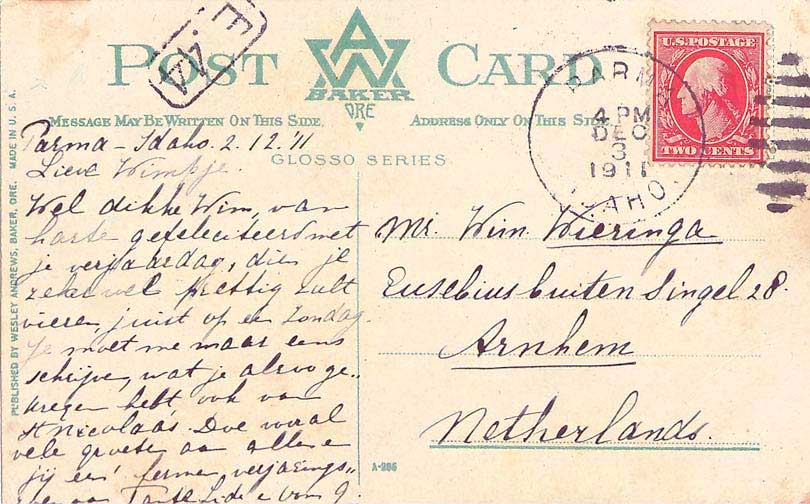 POST CARD
AW
BAKER
ORE
MESSAGE MAY BE WRITTEN ON THIS SIDE.
ADDRESS ONLY ON THIS SIDE
GLOSSO SERIES
U.S. POSTAGE
TWO CENTS
PARMA
4 PM
DEC
3
1911
IDAHO
PUBLISHED BY WESLEY ANDREWS, BAKER, ORE. MADE IN U.S.A.
Parma - Idaho. 2.12.'11
Lieve Wimpje.
Wel dikke Wim, van
harte gefeliciteerd met
je verjaardag, dien je
zeker wel prettig zult
vieren, juist op een Zondag.
Je moet me maar eens
schrijven, wat je alzoo ge„
kregen hebt ook van
St Nicolaas. Doe vooral
vele groeten aan allen e
jij een ferme verjarings„
van Tante Lide
Mr. Wim Wieringa
Eusebiusbuiten Singel 28.
Arnhem
Netherlands.
A-286